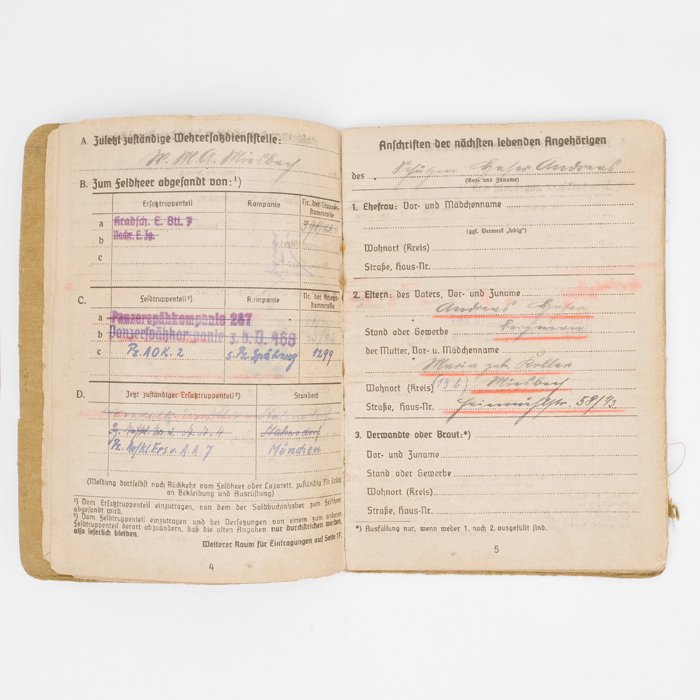 A. Zuletzt zuständige Wehrersatzdienststelle:
W. M. A. Miesbach
B. Zum Feldheer abgesandt von:¹)
Ersatztruppenteil Kompanie Nr. der Truppenstammrolle
a Kradsch. E. Btl. 7
b
c
C. Feldtruppenteil²) Kompanie Nr. der Kriegsstammrolle
a Panzerspähkompanie 267
b Panzerspähkompanie z. b. V. 468
c Pz. AOK. 2 s. Pz. Spähzug 1299
D. Jetzt zuständiger Ersatztruppenteil²) Standort
Stahnsdorf
Pz. Aufkl. Ers. u. A. A. 7 München
(Meldung dortselbst nach Rückkehr vom Feldheer oder Lazarett, zuständig für Ersatz
an Bekleidung und Ausrüstung)
¹) Vom Ersatztruppenteil einzutragen, von dem der Soldbuchinhaber zum Feldheer
abgesandt wird.
²) Vom Feldtruppenteil einzutragen und bei Versetzungen von einem zum anderen
Feldtruppenteil derart abzuändern, daß die alten Angaben nur durchstrichen werden,
also leserlich bleiben.
Weiterer Raum für Eintragungen auf Seite 17.
4
Anschriften der nächsten lebenden Angehörigen
des Schützen Andreas
(Vor- und Zuname)
1. Ehefrau: Vor- und Mädchenname
(ggf. Vermerk „ledig")
Wohnort (Kreis)
Straße, Haus-Nr.
2. Eltern: des Vaters, Vor- und Zuname
Andreas
Stand oder Gewerbe Bergmann
der Mutter, Vor- u. Mädchenname
Maria geb.
Wohnort (Kreis) (13 b) Miesbach
Straße, Haus-Nr. 58 1/2
3. Verwandte oder Braut:*)
Vor- und Zuname
Stand oder Gewerbe
Wohnort (Kreis)
Straße, Haus-Nr.
*) Ausfüllung nur, wenn weder 1. noch 2. ausgefüllt sind.
5